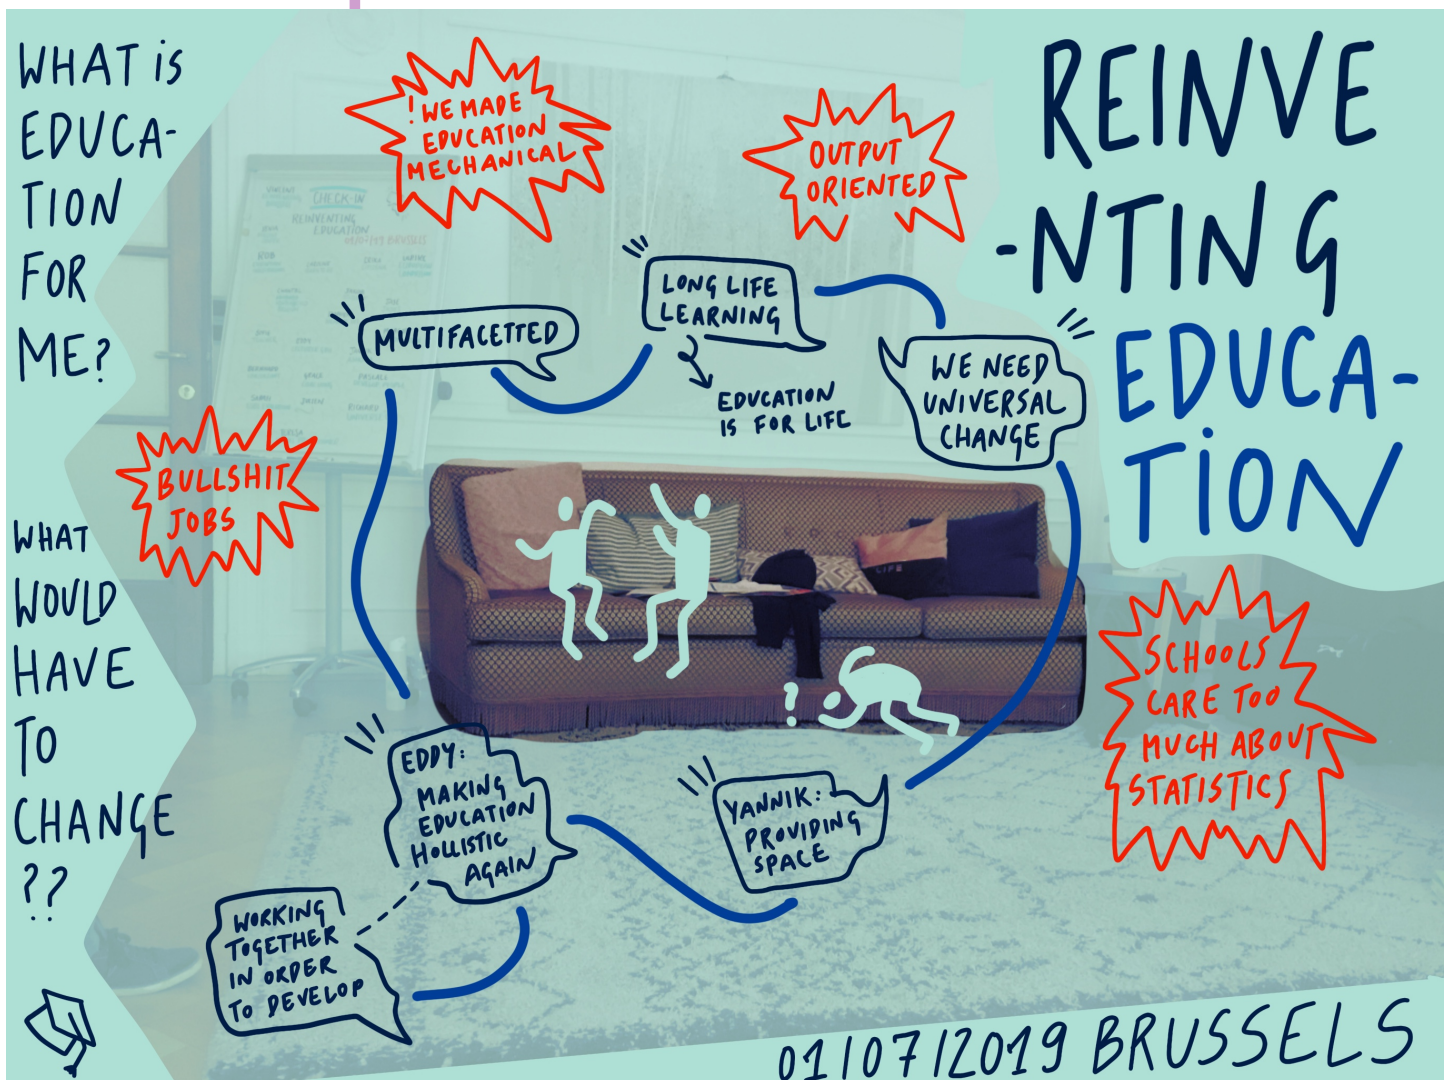 WHAT iS
EDUCA-
TION
FOR
ME?
WHAT
WOULD
HAVE
TO
CHANGE
??
REINVE
-NTING
EDUCA-
TION
! WE MADE
EDUCATION
MECHANICAL
OUTPUT
ORIENTED
CHECK-IN
REINVENTING
EDUCATION
MULTIFACETTED
LONG LIFE
LEARNING
EDUCATION
IS FOR LIFE
WE NEED
UNIVERSAL
CHANGE
BULLSHIT
JOBS
LIFE
?
SCHOOLS
CARE TOO
MUCH ABOUT
STATISTICS
EDDY:
MAKING
EDUCATION
HOLLISTIC
AGAIN
YANNIK:
PROVIDING
SPACE
WORKING
TOGETHER
IN ORDER
TO DEVELOP
01/07/2019 BRUSSELS